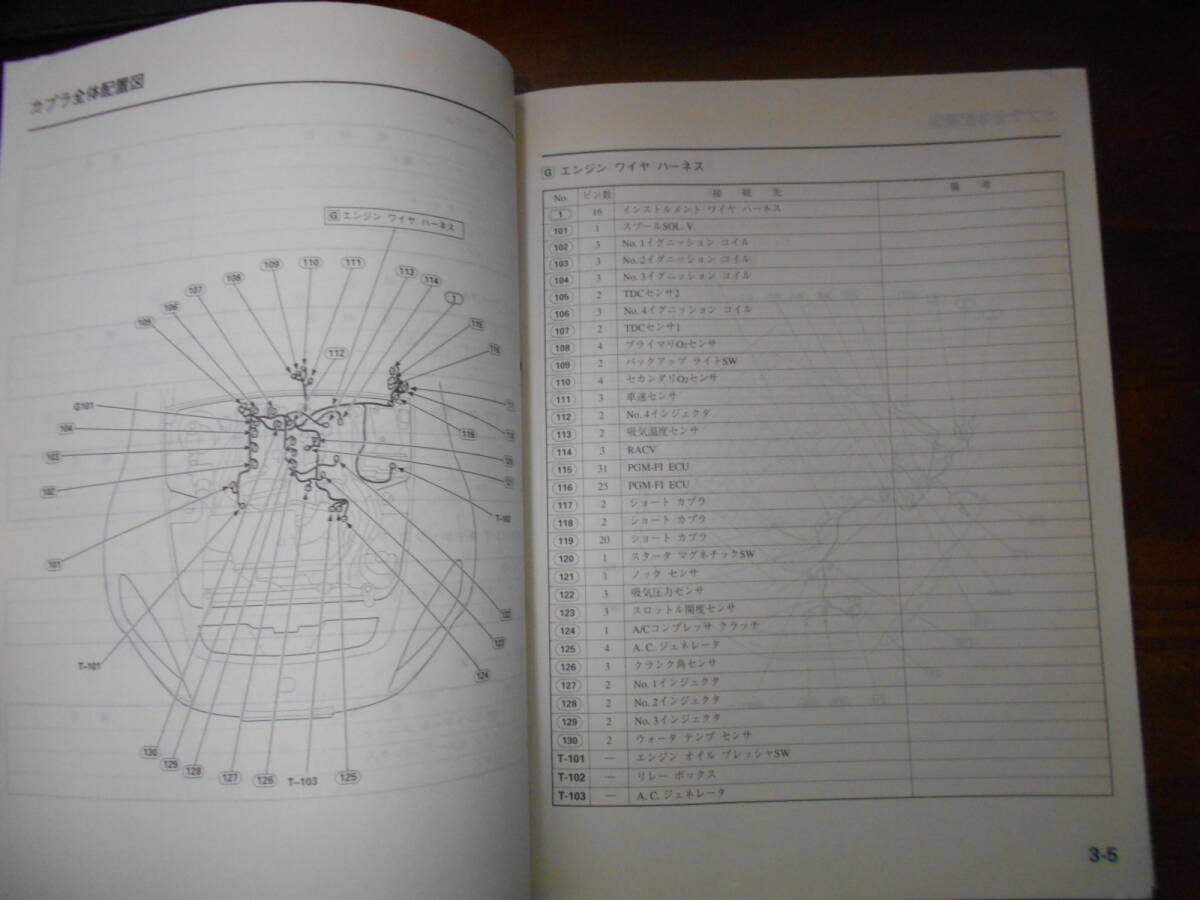 カプラ全体配置図
G エンジン ワイヤ ハーネス
105
106
107
108
109
110
111
113
114
1
115
112
G101
104
103
102
101
T-101
T-102
124
130
129
128
127
126
T-103
125
G エンジン ワイヤ ハーネス
No. ピン数 接続先 備考
1 16 インストルメント ワイヤ ハーネス
101 1 スプールSOL. V.
102 3 No. 1イグニッション コイル
103 3 No. 2イグニッション コイル
104 3 No. 3イグニッション コイル
105 2 TDCセンサ2
106 3 No. 4イグニッション コイル
107 2 TDCセンサ1
108 4 プライマリO2センサ
109 2 バックアップ ライトSW
110 4 セカンダリO2センサ
111 3 車速センサ
112 2 No. 4インジェクタ
113 2 吸気温度センサ
114 3 RACV
115 31 PGM-FI ECU
116 25 PGM-FI ECU
117 2 ショート カプラ
118 2 ショート カプラ
119 20 ショート カプラ
120 1 スタータ マグネチックSW
121 1 ノック センサ
122 3 吸気圧力センサ
123 3 スロットル開度センサ
124 1 A/Cコンプレッサ クラッチ
125 4 A. C. ジェネレータ
126 3 クランク角センサ
127 2 No. 1インジェクタ
128 2 No. 2インジェクタ
129 2 No. 3インジェクタ
130 2 ウォータ テンプ センサ
T-101 — エンジン オイル プレッシャSW
T-102 — リレー ボックス
T-103 — A. C. ジェネレータ
3-5